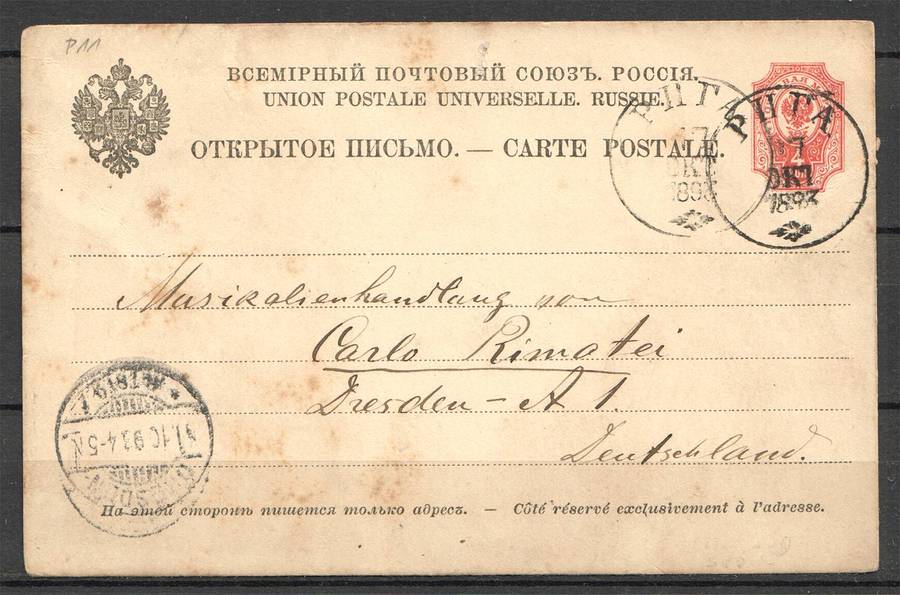 P 11
ВСЕМІРНЫЙ ПОЧТОВЫЙ СОЮЗЪ. РОССІЯ.
UNION POSTALE UNIVERSELLE. RUSSIE.
ОТКРЫТОЕ ПИСЬМО. — CARTE POSTALE.
РИГА
17
ОКТ
1893
РИГА
17
ОКТ
1893
4
Musikalienhandlung von
Carlo Rimatei
Dresden - A 1.
Deutschland.
10 93 4-5 N
DRESDEN
На этой сторонѣ пишется только адресъ. — Côté réservé exclusivement à l'adresse.